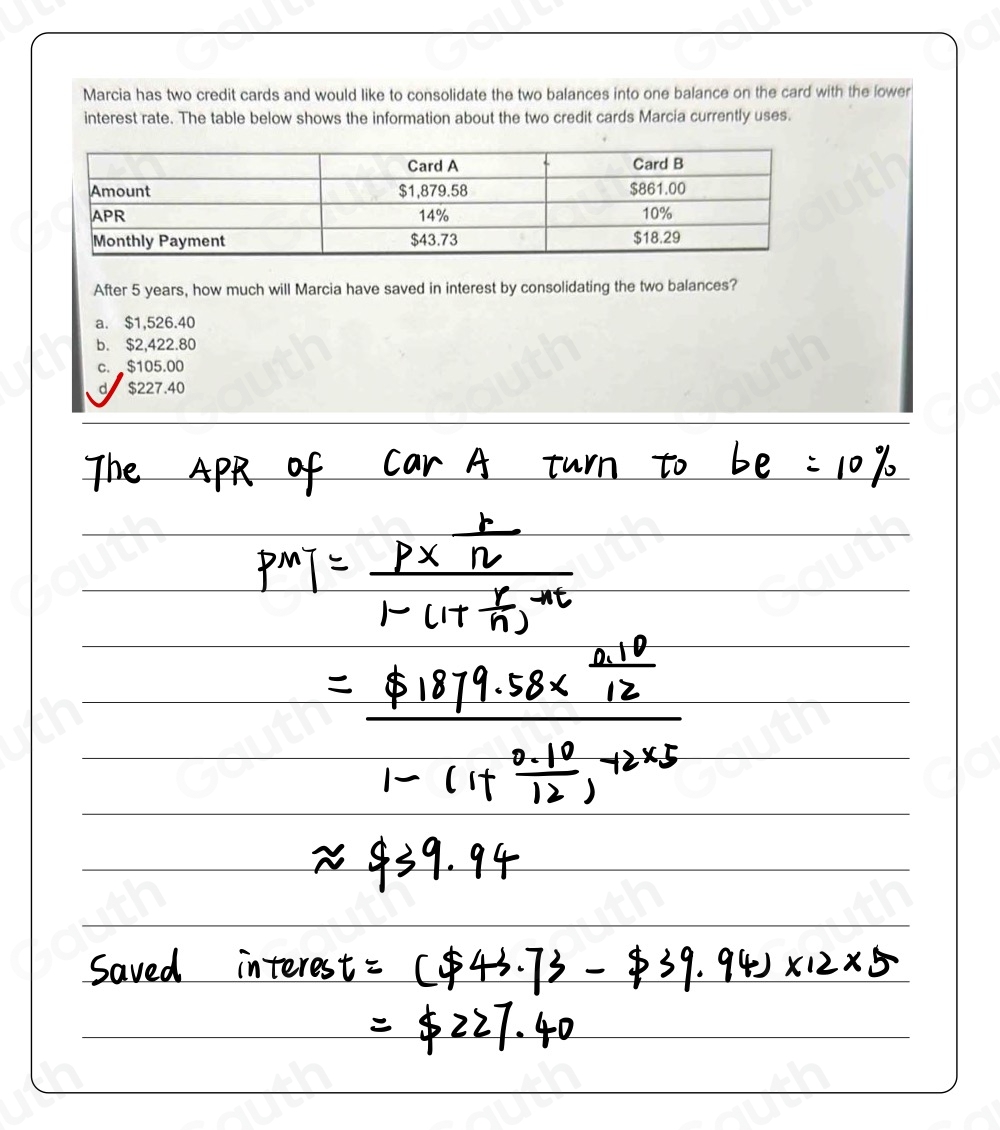 Marcia has two credit cards and would like to consolidate the two balances into one balance on the card with the lower
interest rate. The table below shows the information about the two credit cards Marcia currently uses.
Card A Card B
Amount $1,879.58 $861.00
APR 14% 10%
Monthly Payment $43.73 $18.29
After 5 years, how much will Marcia have saved in interest by consolidating the two balances?
a. $1,526.40
b. $2,422.80
c. $105.00
d $227.40
The APR of Car A turn to be = 10%
PMT = P × r/n / 1 - (1 + r/n)^-nt
= $1879.58 × 0.10/12 / 1 - (1 + 0.10/12)^-12×5
≈ $39.94
Saved interest = ($43.73 - $39.94) × 12 × 5
= $227.40
Gauth